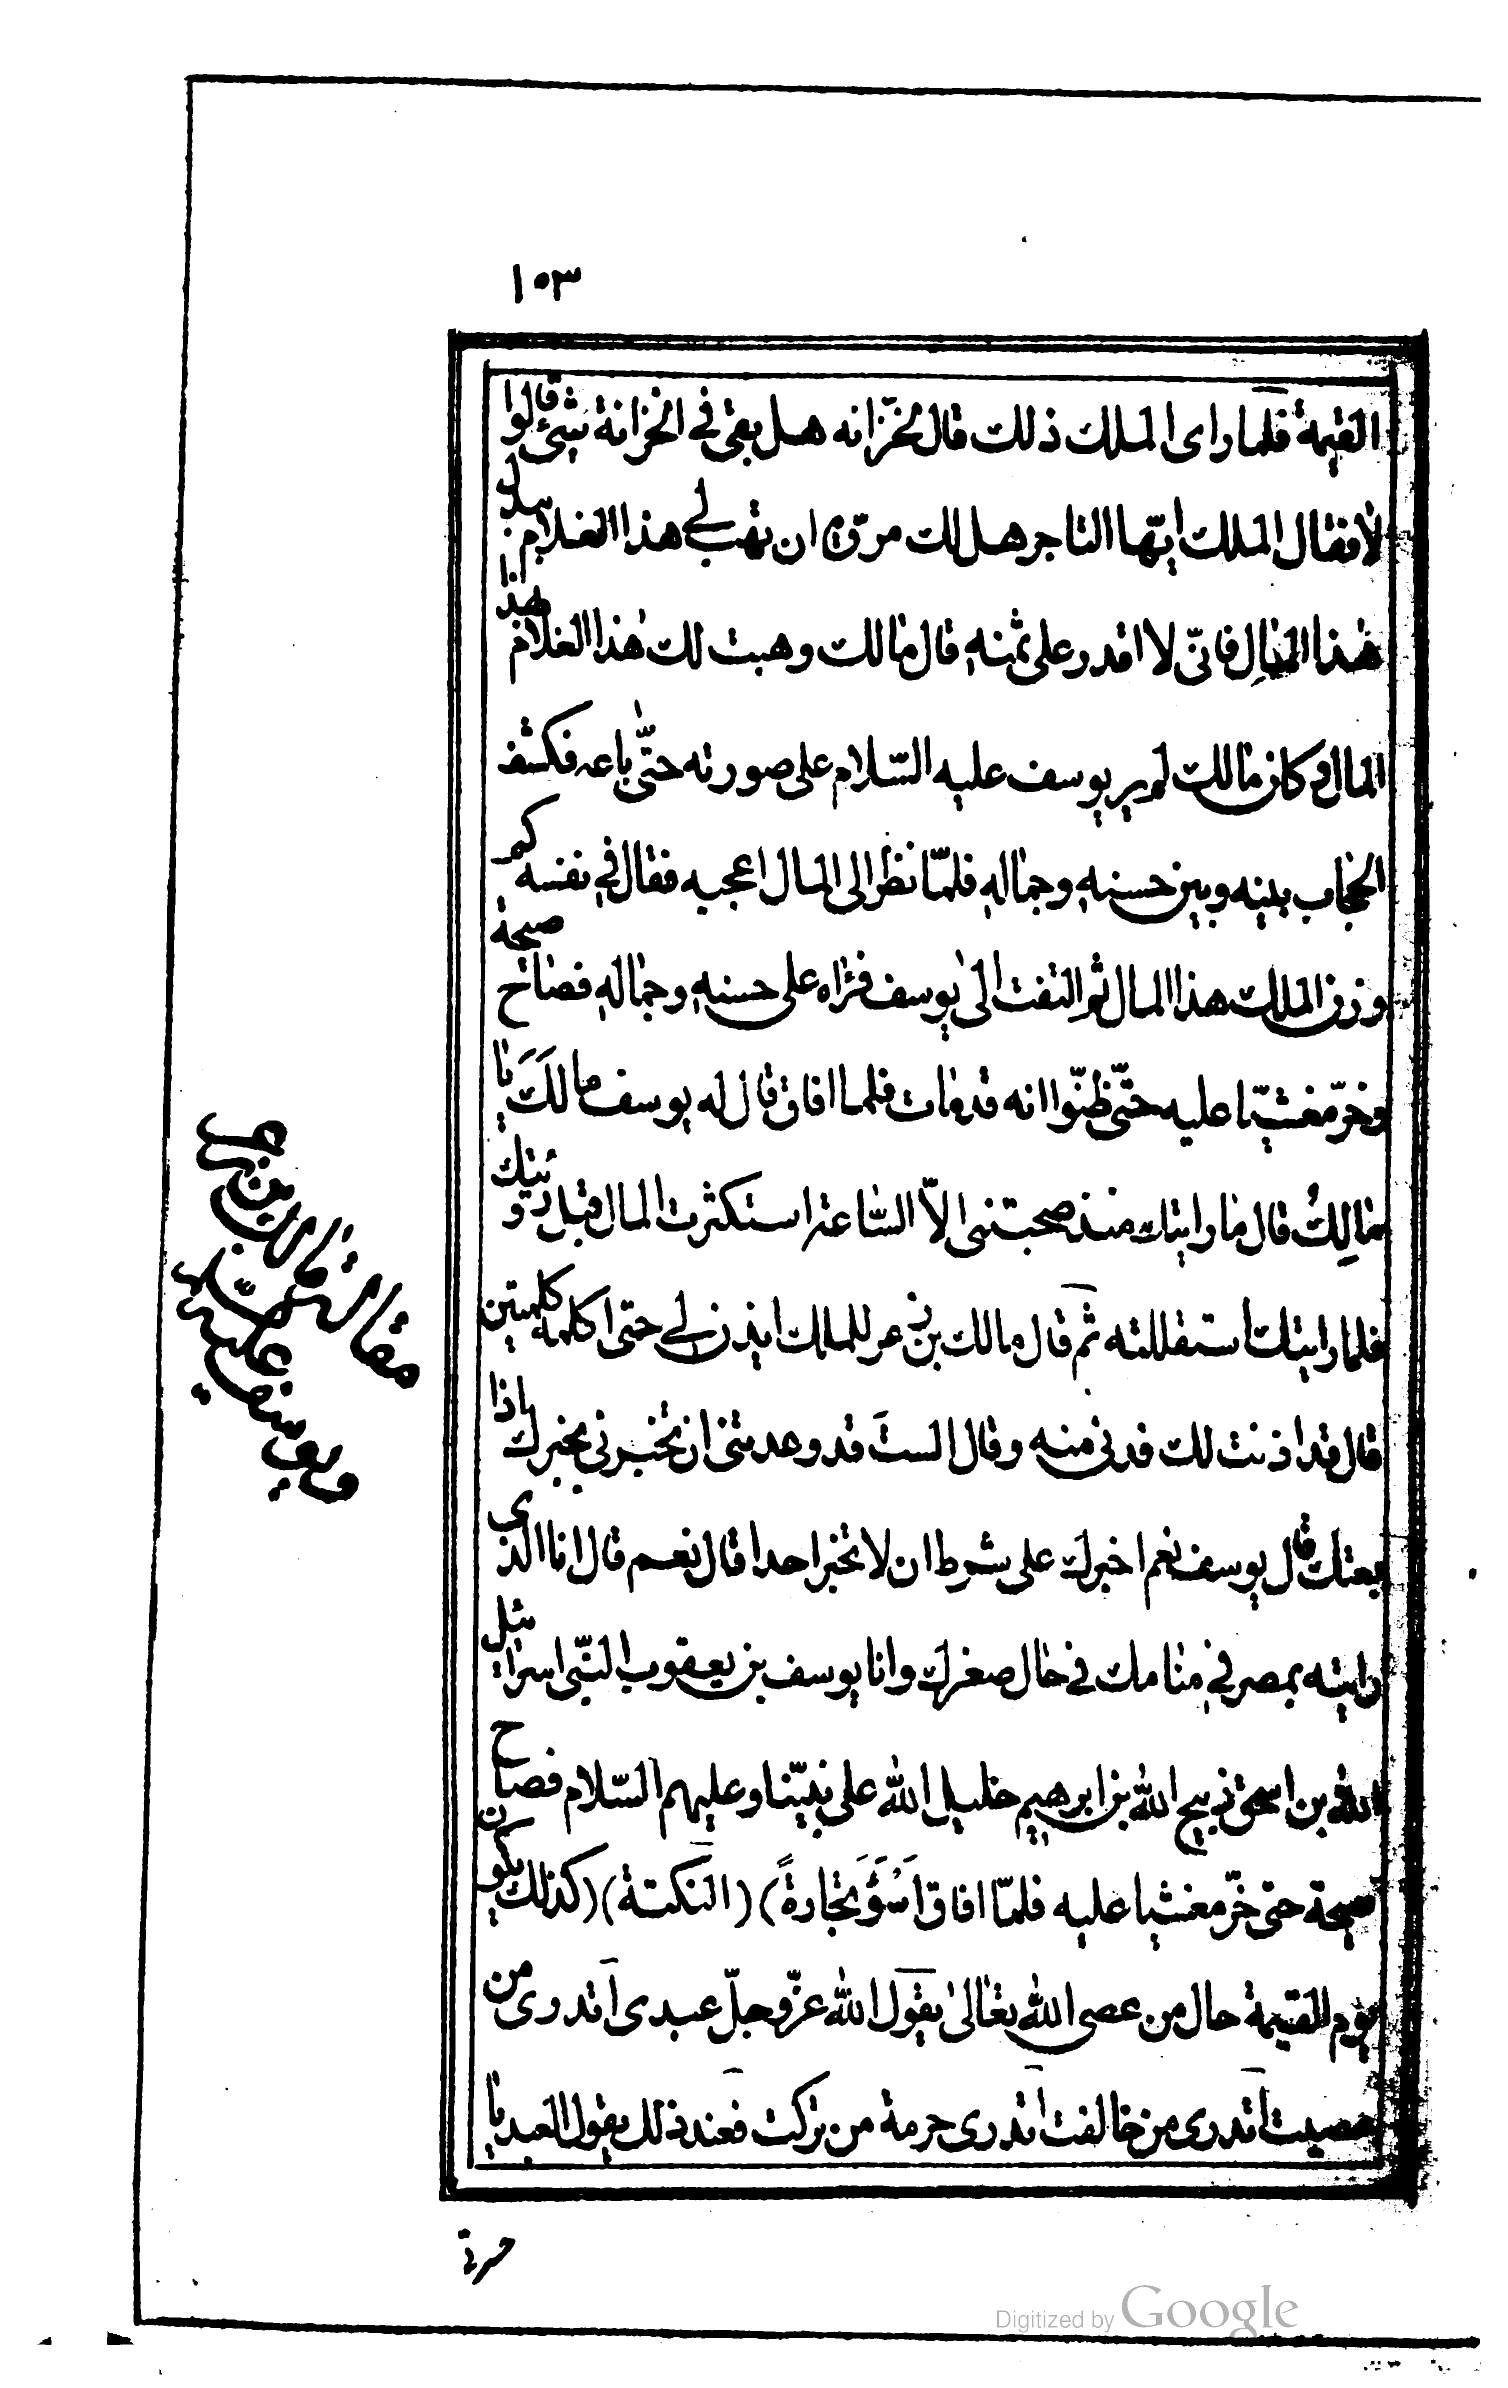 ١٠٣
القيمة فلما راى الملك ذلك قال لخزانه هل بقى فى الخزانة شئ قالوا
لا فقال الملك ايّها التاجر هل لك مروّة ان تهب لى هذا الغلام بدل
هذا المال فانّى لا اقدر على ثمنه قال مالك وهبت لك هذا الغلام بهذا
المال وكان مالك لم ير يوسف عليه السّلام على صورته حتّى باعه فكشف
الحجاب بينه وبين حسنه وجماله فلمّا نظر الى المال اعجبه فقال فى نفسه كم
وزن الملك هذا المال ثم التفت الى يوسف فراه على حسنه وجماله فصاح صيحة
وخرّ مغشيّا عليه حتّى ظنّوا انه قد مات فلما افاق قال له يوسف ما لكَ يا
مالكُ قال ما رايتك منذ صحبتنى الاّ السّاعة استكثرت المال قبل رؤيتك
فلما رايتك استقللته ثم قال مالك بن ذعر للملك ايذن لى حتى اكلمه كلمتين
قال قد اذنت لك فدنى منه وقال الستَ قد وعدتنى ان تخبرنى بخبرك اذا
بعتك قال يوسف نعم اخبرك على شرط ان لا تخبر احدا قال نعم قال انا الذى
رايته بمصر فى منامك فى حال صغرك وانا يوسف بن يعقوب النبّى اسرائيل
الله بن اسحق ذبيح الله بن ابرهيم خليل الله على نبيّنا وعليهم السّلام فصاح
صيحة حتى خرّ مغشيا عليه فلمّا افاق اَسْوَءَ تجارةً) (النكتة) (كذلك يكون
يوم القيمة حال من عصى الله تعالىٰ يقول الله عزّ وجلّ عبدى اتدرى من
عصيت اتدرى من خالفت اتدرى حرمة من تركت فعند ذلك يقول العبد يا
مقالة مالك بن ذعر
ويوسف عليه السّلام
حسرتى
Digitized by Google